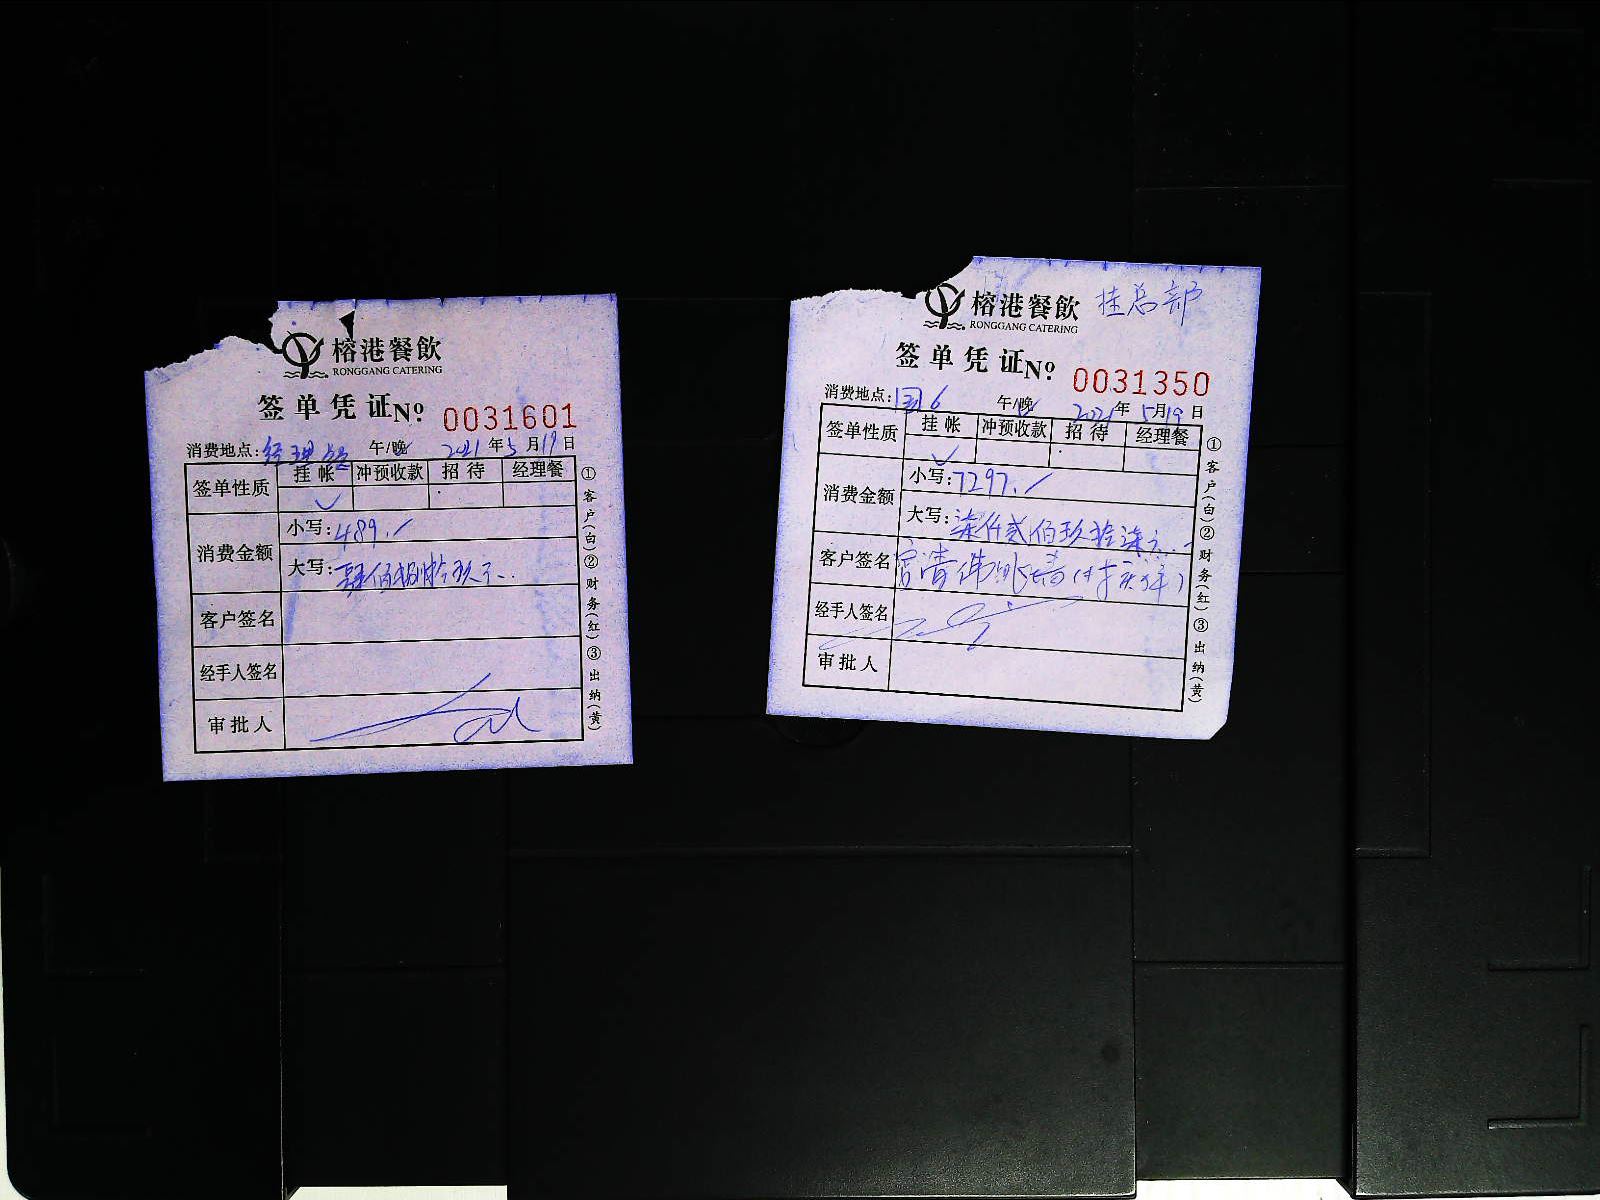 榕港餐飲
RONGGANG CATERING
签单凭证 Nº 0031601
消费地点: 经理 午/晚 2021年5月19日
签单性质 挂帐 冲预收款 招待 经理餐
✓
消费金额 小写: 489.
大写: 肆佰捌拾玖元
客户签名
经手人签名
审批人
①客户(白)②财务(红)③出纳(黄)
榕港餐飲 挂总部
RONGGANG CATERING
签单凭证 Nº 0031350
消费地点: 6 午/晚 2021年5月19日
签单性质 挂帐 冲预收款 招待 经理餐
✓
消费金额 小写: 7297.
大写: 柒仟贰佰玖拾柒元
客户签名
经手人签名
审批人
①客户(白)②财务(红)③出纳(黄)